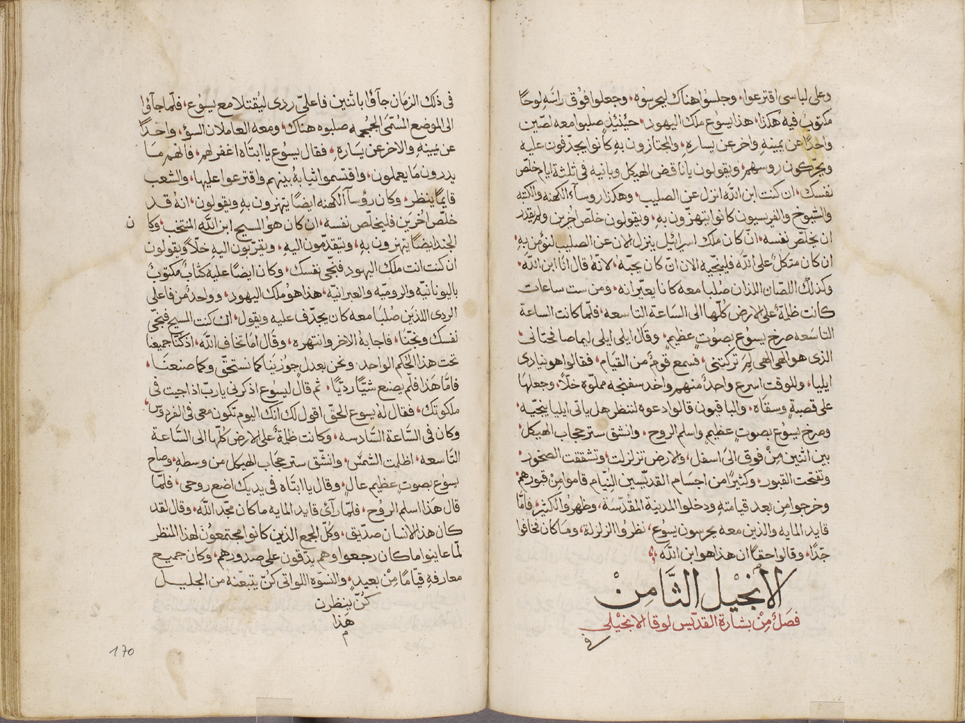 وعلى لباسى اقترعوا، وجلسوا هناك ليحرسوه، وجعلوا فوق راسه لوحًا
مكتوب فيه هكذا، هذا يسوع ملك اليهود، حينئذٍ صلبوا معه لصّين
واحدًا عن يمينه واخر عن يساره، والمجتازون به كانوا يجدّفون عليه
ويحركون روسهم، ويقولون ياناقض الهيكل وبانيه فى ثلثة ايام خلّص
نفسك، ان كنت ابن الله انزل عن الصليب، وهكذا روسآء الكهنه والكتبه
والشيوخ والفريسيون كانوا يتهزون به، ويقولون خلّص اخرين ولم يقدر
ان يخلّص نفسه، ان كان ملك اسرائيل ينزل الان عن الصليب لنؤمن به،
ان كان متكلًا على الله فلينجّيه الان ان كان يحبّه، لانّه قال انّا ابن الله،
وكذلك اللصّان اللذان صُلبا معه كانا يعيّرانه، ومن ست ساعات
كانت ظلمةٌ على الارض كلّها الى السّاعة التاسعه، فلمّا كانت الساعة
التاسعه صرخ يسوع بصوتٍ عظيم، وقال ايلى ايلى ليماصافختانى
الذى هو الهى الهى لِمَ تركتنى، فسمع قومٌ من القيام، فقالوا هو ينادى
ايليا، وللوقت اسرع واحدٌ منهم واخد سفنجه مملوّة خلًّا، وجعلها
على قصبةٍ وسقاه، والباقيون قالوا دعوه لننظر هل ياتى ايليا ينجّيه،
وصرخ يسوع بصوتٍ عظيمٍ واسلم الروح، وانشق ستر حجاب الهيكل
بين اثنين مِنْ فوق الى اسفل، والارض تزلزلت، وتشققت الصخور
وتفتحت القبور، وكثيرًا من اجسام القدّيسين النيام قاموا من قبورهم
وخرجوا من بعد قيامته ودخلوا المدينة المقدّسة، وظهروا لكثيرٍ، فامّا
قايد المايه والذين معه يحرسون يسوع، نظروا الزلزلة، وما كان فخافوا
جدًّا، وقالوا حقًا ان هذا هو ابن الله
الانجيل الثّامن
فصلٌ مِنْ بشارة القدّيس لوقا الانجيلى
فى
فى ذلك الزمان جآؤا باثنين فاعلىّ ردى ليقتلا مع يسوع، فلمّا جآؤا
الى الموضع المُسمّى الجمجمه صلبوه هناك، ومعه العاملان السؤ، واحدًا
عن يمينه والاخر عن يساره، فقال يسوع ياابتاه اغفر لهم، فانهم مَا
يدرون ما يعملون، واقتسموا ثيابهُ بينهم واقترعوا عليها، والشعب
قايمًا ينظر، وكان روسآ الكهنه ايضًا يتهزون به ويقولون، انه قد
خلّص اخرين فليخلّص نفسه، ان كان هو المسيح ابن الله المنتخب، وكان
الجند ايضًا يتهزون به، ويتقدّمون اليه، ويقربون اليه خلًّا ويقولون
ان كنت انت ملك اليهود فنجّى نفسك، وكان ايضا عليه كتابٌ مكتوبٌ
باليونانيّه والروميّه والعبرانيّه، هذا هو ملك اليهود، وواحدٌ من فاعلى
الردى اللذين صُلبا معه كان يجدّف عليه ويقول، ان كنت المسيح فنجّى
نفسك ونجّنا، فاجابهُ الاخر وانتهره، وقال اما تخاف الله، اذ كنّا جميعًا
تحت هذا الحُكم الواحد، ونحن بعدلٍ جوزينا كما نستحقّ وكما صنعنا،
فامّا هذا فلم يصنع شيًّا رديًّا، ثم قال ليسوع اذكرنى ياربّ اذا جيت فى
ملكوتك، فقال لهُ يسوع الحقّ اقول لك انك اليوم تكون معى فى الفردوس،
وكان فى السّاعة السّادسه، وكانت ظلمةٌ على الارض كلّها الى السّاعة
التّاسعه، اظلمت الشمس، وانشقّ ستر حجاب الهيكل من وسطهِ، وصاح
يسوع بصوتٍ عظيمٍ عالٍ، وقال ياابتاه فى يديك اضع روحى، فلمّا
قال هذا اسلم الرّوح، فلمّا رآئ قايد المايه ما كان مجّد الله، وقال لقد
كان هذا الانسان صدّيق، وكلّ الجمع الذين كانوا مجتمعون لهذا المنظر
لمّا عاينوا ما كان رجعوا وهم يدقّون على صدورهم، وكان جميع
معارفهِ قيامًا من بعيدٍ، والنّسوَه اللواتى كنّ يتبعّنهُ من الجليل
كنّ ينظرن
هذا
170